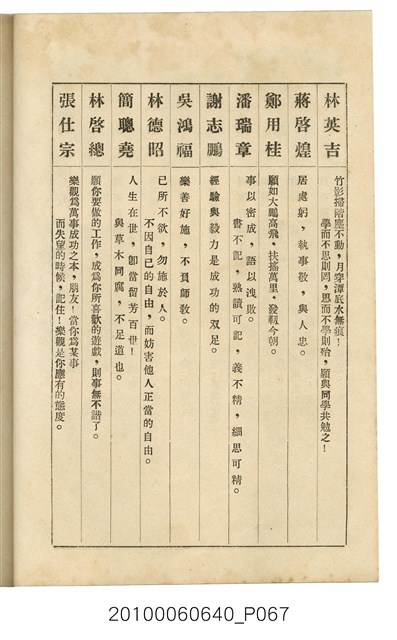 林英吉
竹影掃階塵不動，月穿潭底水無痕！
學而不思則罔，思而不學則殆，願與同學共勉之！
蔣啓煌
居處躬，執事敬，與人忠。
鄭用桂
願如大鵬高飛，扶搖萬里，發軔今朝。
潘瑞章
事以密成，語以洩敗。
書不記，熟讀可記，義不精，細思可精。
謝志鵬
經驗與毅力是成功的双足。
吳鴻福
樂善好施，不負師教。
林德昭
己所不欲，勿施於人。
不因自己的自由，而妨害他人正當的自由。
簡聰堯
人生在世，卽當留芳百世！
與草木同腐，不足道也。
林啓總
願你要做的工作，成爲你所喜歡的遊戲，則事無不諧了。
張仕宗
樂觀爲萬事成功之本，朋友！當你爲某事
而失望的時候，記住！樂觀是你應有的態度。
20100060640_P067